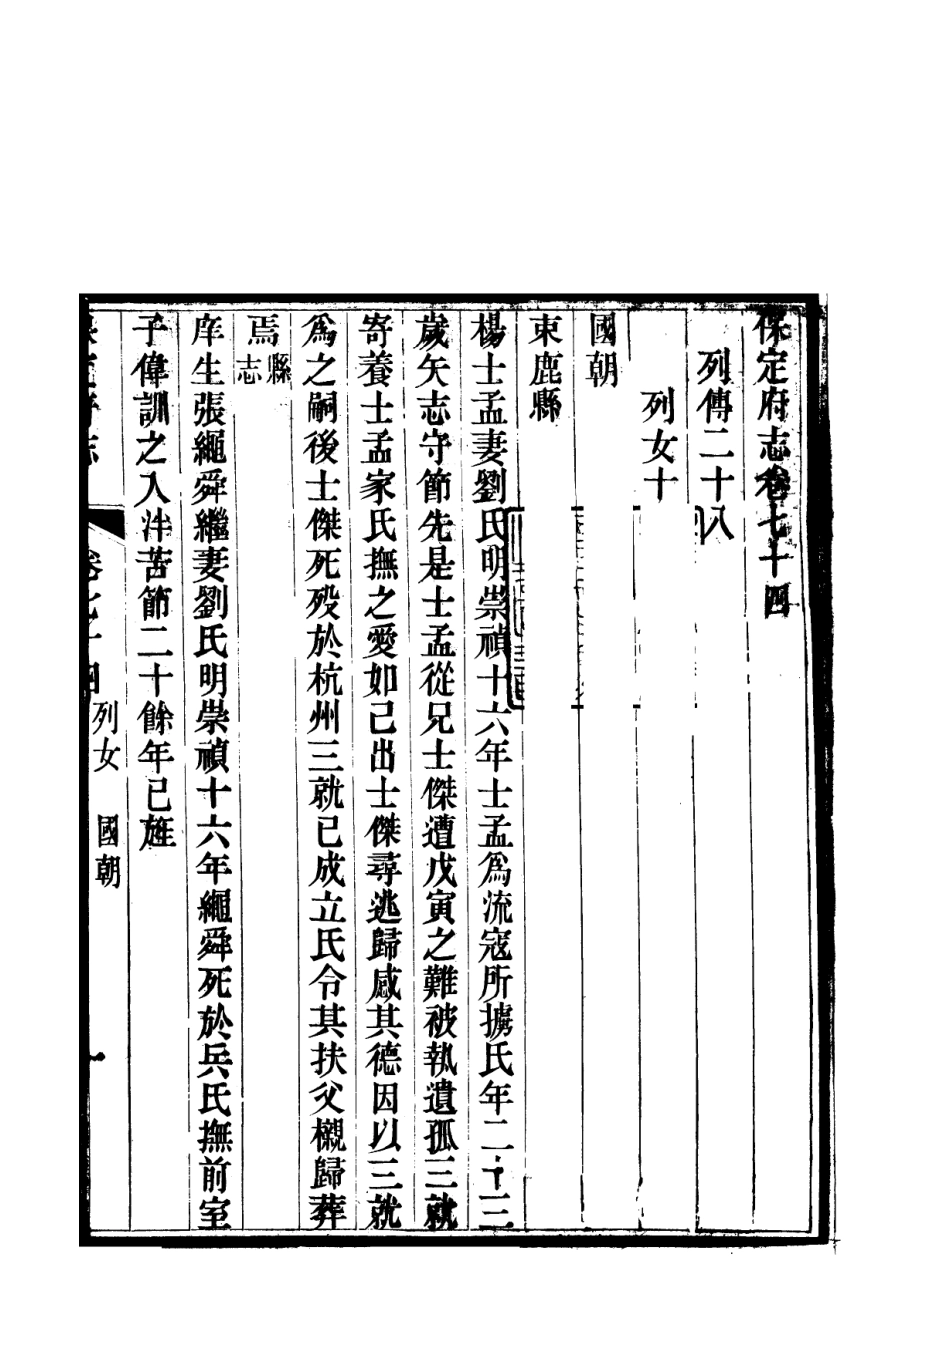 保定府志卷七十四
列傳二十八
列女十
國朝
束鹿縣
楊士孟妻劉氏明崇禎十六年士孟爲流寇所擄氏年二十三
歲矢志守節先是士孟從兄士傑遭戊寅之難被執遺孤三就
寄養士孟家氏撫之愛如己出士傑尋逃歸感其德因以三就
爲之嗣後士傑死歿於杭州三就已成立氏令其扶父櫬歸葬
焉縣志
庠生張繩舜繼妻劉氏明崇禎十六年繩舜死於兵氏撫前室
子偉訓之入泮苦節二十餘年已旌
保定府志 卷七十四 列女 國朝 一